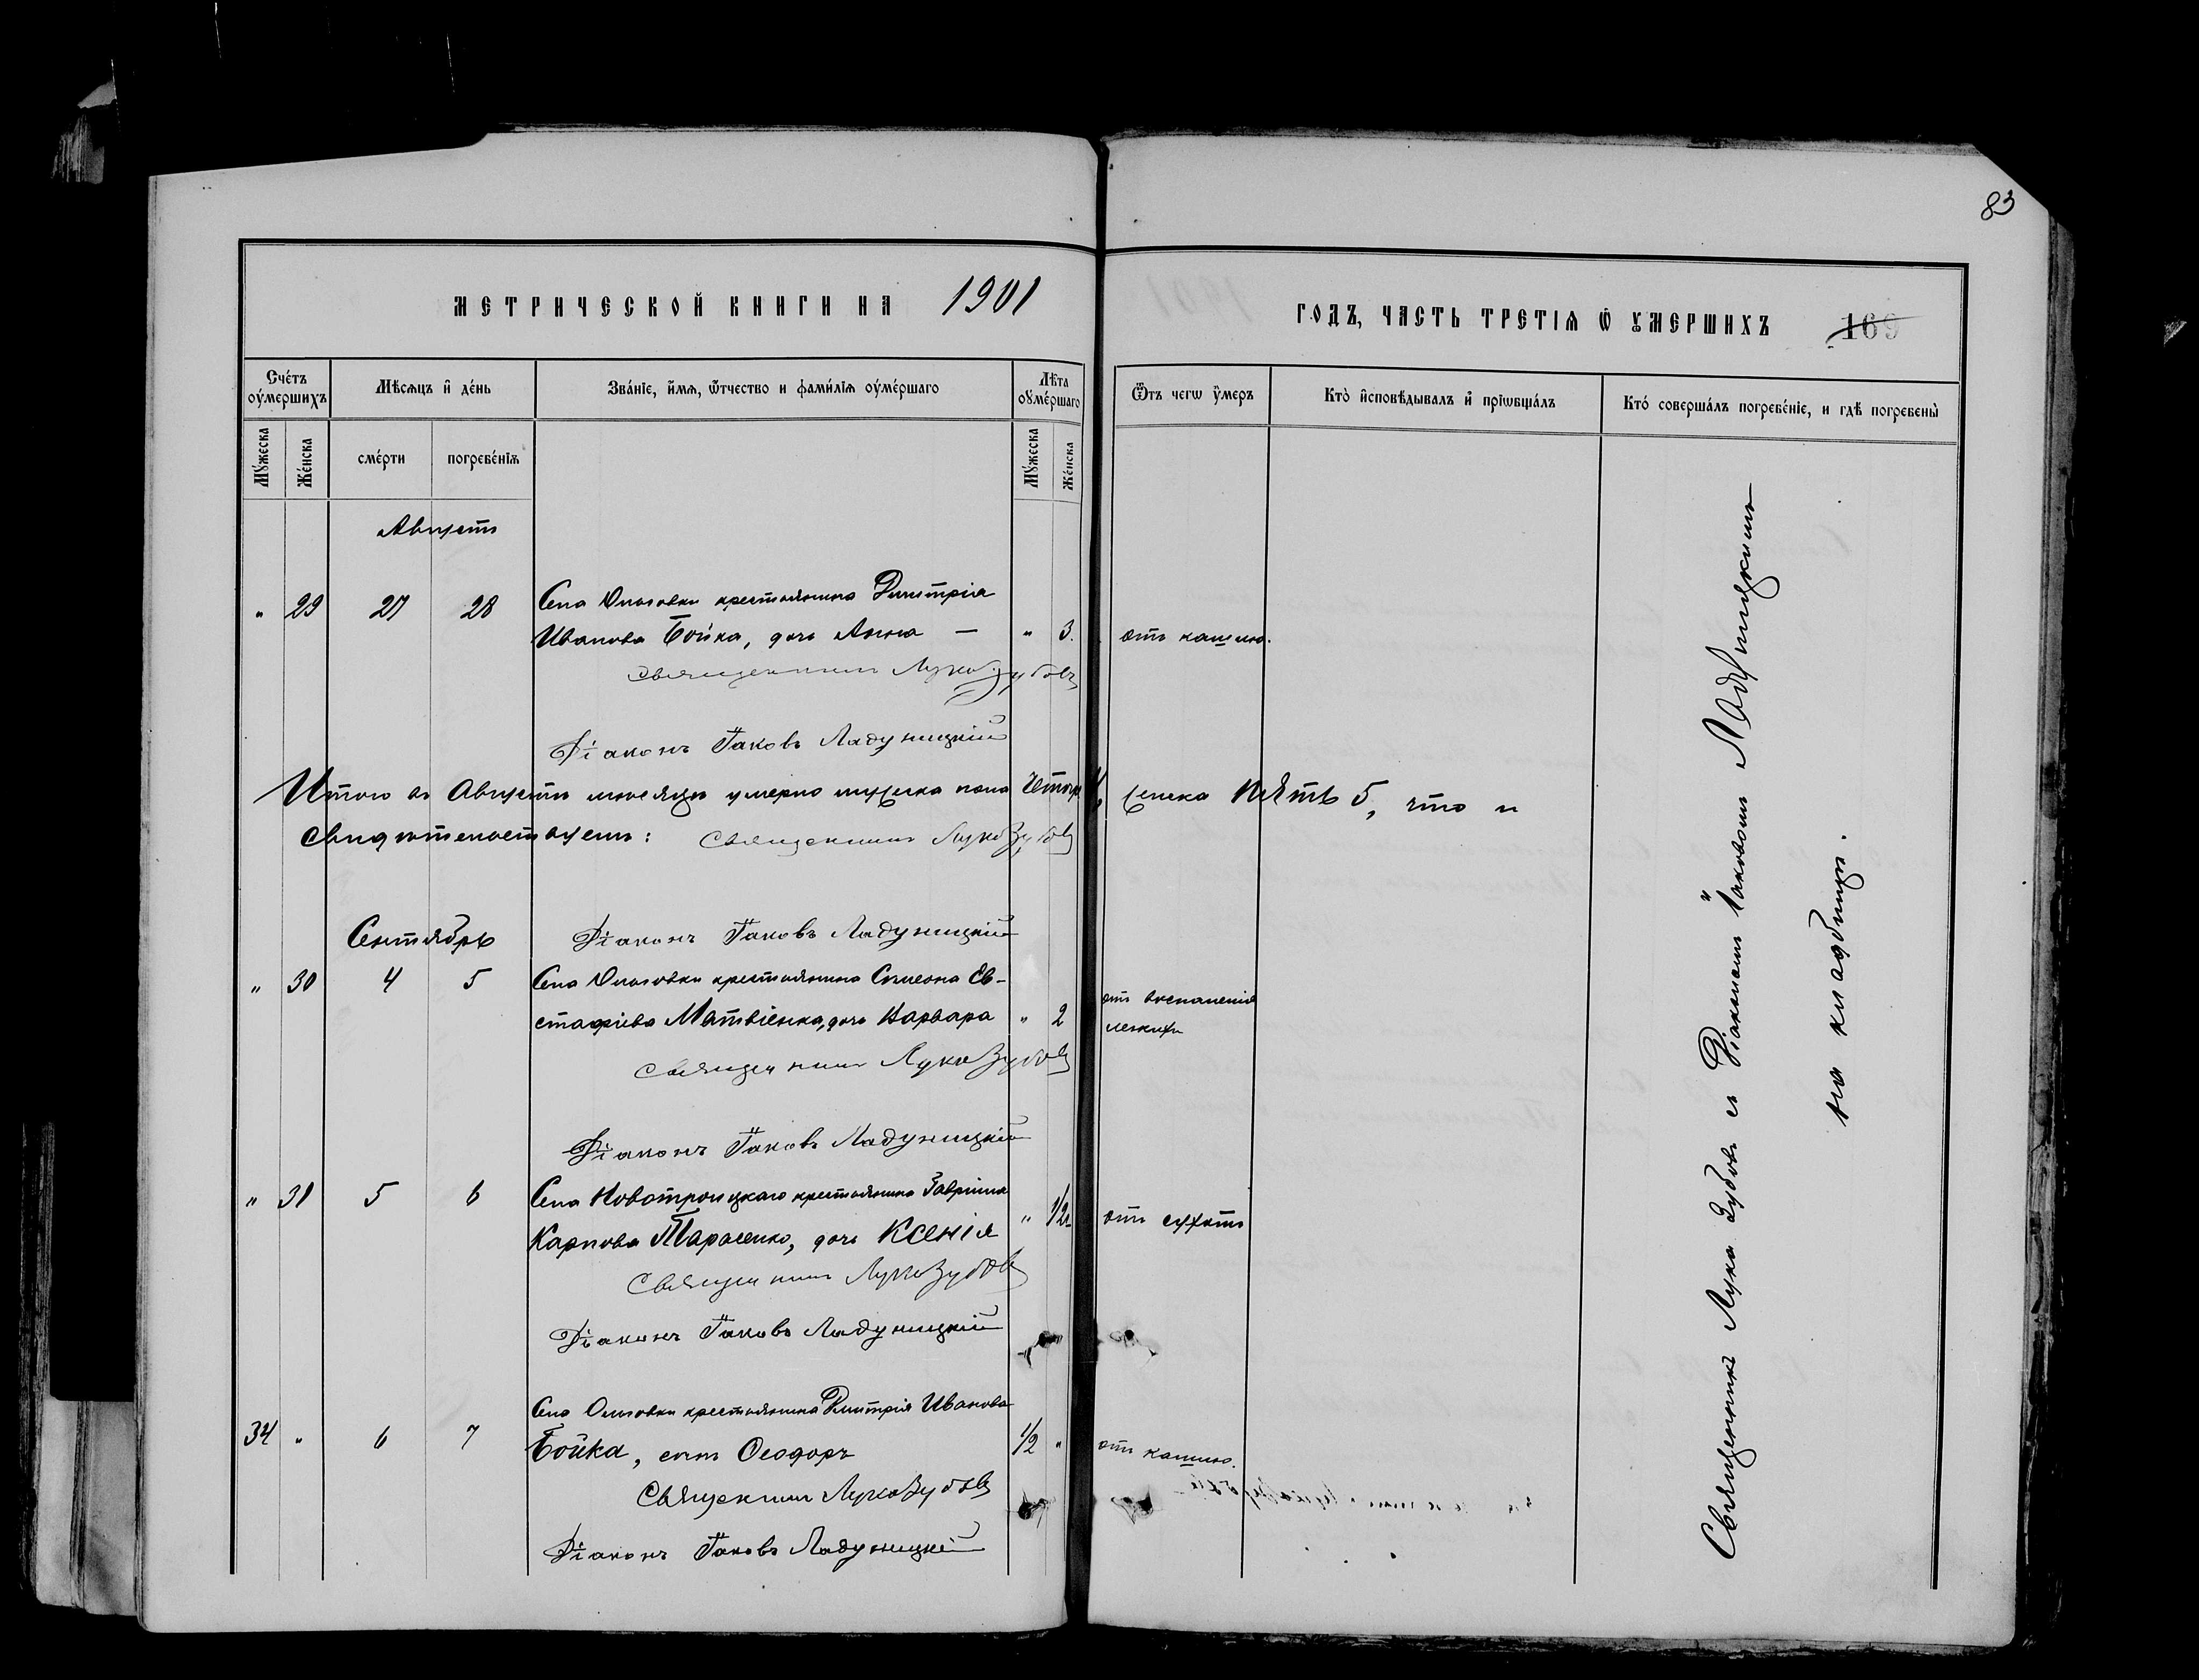 83
МЕТРИЧЕСКОЙ КНИГИ НА 1901
ГОДЪ, ЧАСТЬ ТРЕТІЯ Ѿ УМЕРШИХЪ 169
Счетъ оумершихъ
Мѣсяцъ и день
Званіе, имя, отчество и фамилія оумершаго
Лѣта оумершаго
Отъ чегѡ умеръ
Кто исповѣдывалъ и пріѡбщалъ
Кто совершалъ погребеніе, и гдѣ погребены
Мужеска
Женска
смерти
погребенія
Мужеска
Женска
Августъ
" 29 27 28 Села Ольговки крестьянина Димитрія
Иванова Бойка, дочь Анна — " 3. отъ кашлю.
Священникъ Лука Зубовъ
Діаконъ Іаковъ Ладуницкій
Итого въ Августѣ мѣсяцѣ умерло мужеска пола четыре 4, женска пять 5, что и
свидѣтельствуемъ: Священникъ Лука Зубовъ
Сентябрь Діаконъ Іаковъ Ладуницкій
" 30 4 5 Села Ольговки крестьянина Симеона Ев-
стафіева Матвіенка, дочь Варвара " 2 отъ воспаленія
легкихъ
Священникъ Лука Зубовъ
Діаконъ Іаковъ Ладуницкій
" 31 5 6 Села Новотроицкаго крестьянина Гавріила
Карпова Тарасенко, дочь Ксенія " 1/2 отъ сухотъ
Священникъ Лука Зубовъ
Діаконъ Іаковъ Ладуницкій
34 " 6 7 Села Ольговки крестьянина Димитрія Иванова
Бойка, сынъ Ѳеодоръ 1/2 " отъ кашлю.
Священникъ Лука Зубовъ
Діаконъ Іаковъ Ладуницкій
Священникъ Лука Зубовъ съ Діакономъ Іаковомъ Ладуницкимъ
на кладбищѣ.